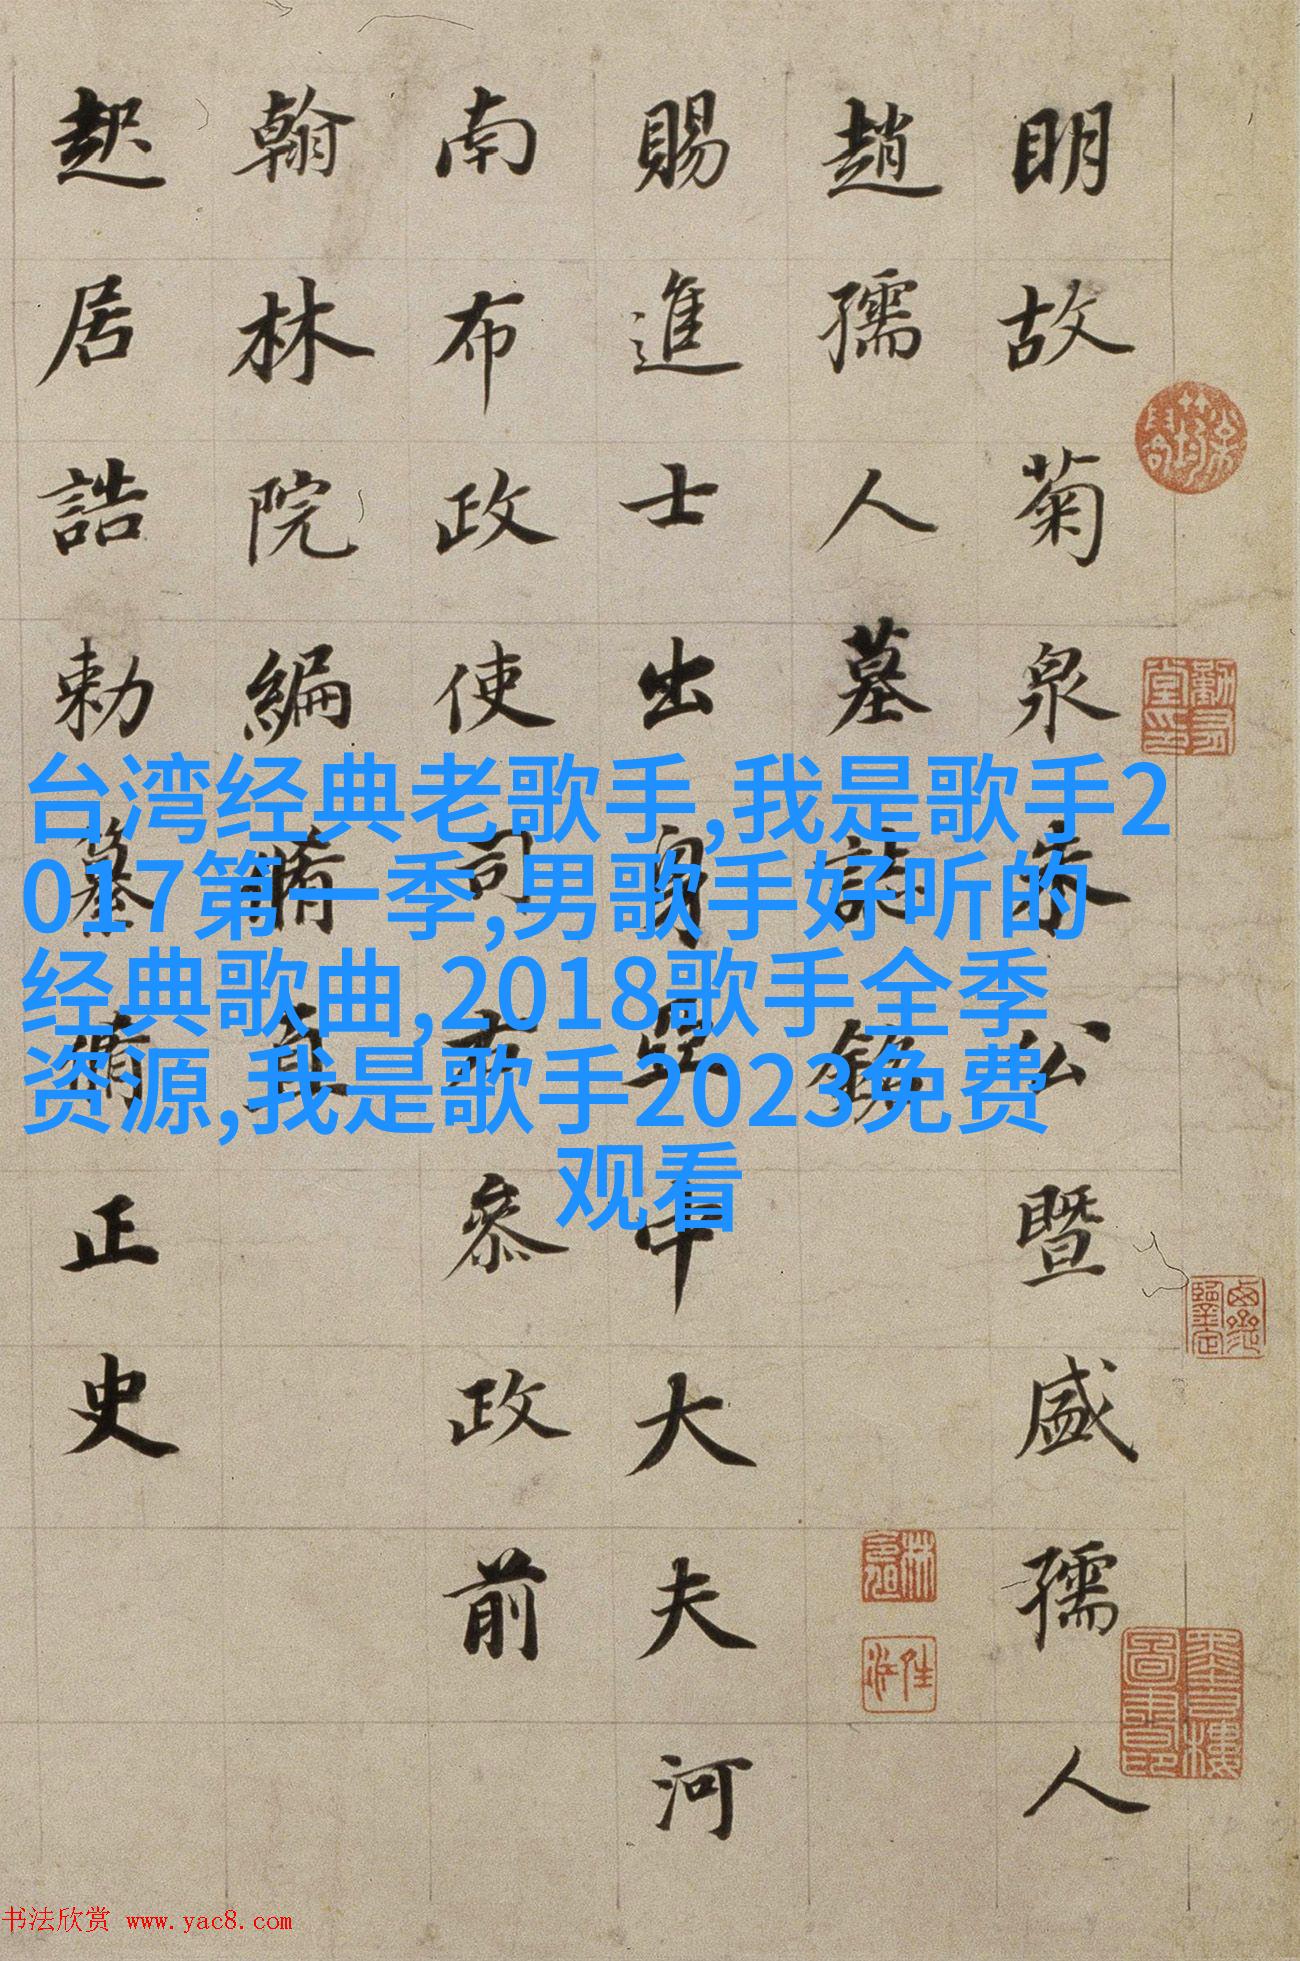 明故菊泉朱公暨盛孺人
趙孺人墓誌銘
賜進士出身亞中大夫河
南布政使司右叅政前
翰林院編脩直
起居誥勅纂脩正史
台湾经典老歌手,我是歌手2
017第一季,男歌手好听的
经典歌曲,2018歌手全季
资源,我是歌手2023免费
观看
书法欣赏 www.yac8.com